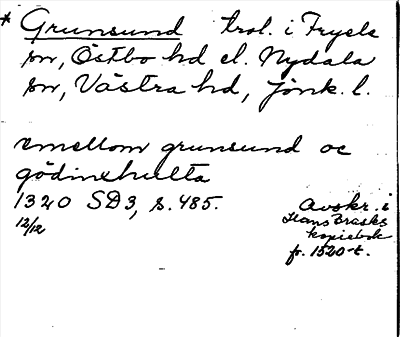 * Grunsund trol. i Fryele
sn, Östbo hd el. Nydala
sn, Västra hd, Jönk. l.
emellom grunsund oc
gödinxhulta
1320 SD3, s. 485.
12/12
Avskr. i
Hans Brasks
kopiebok
fr. 1520-t.